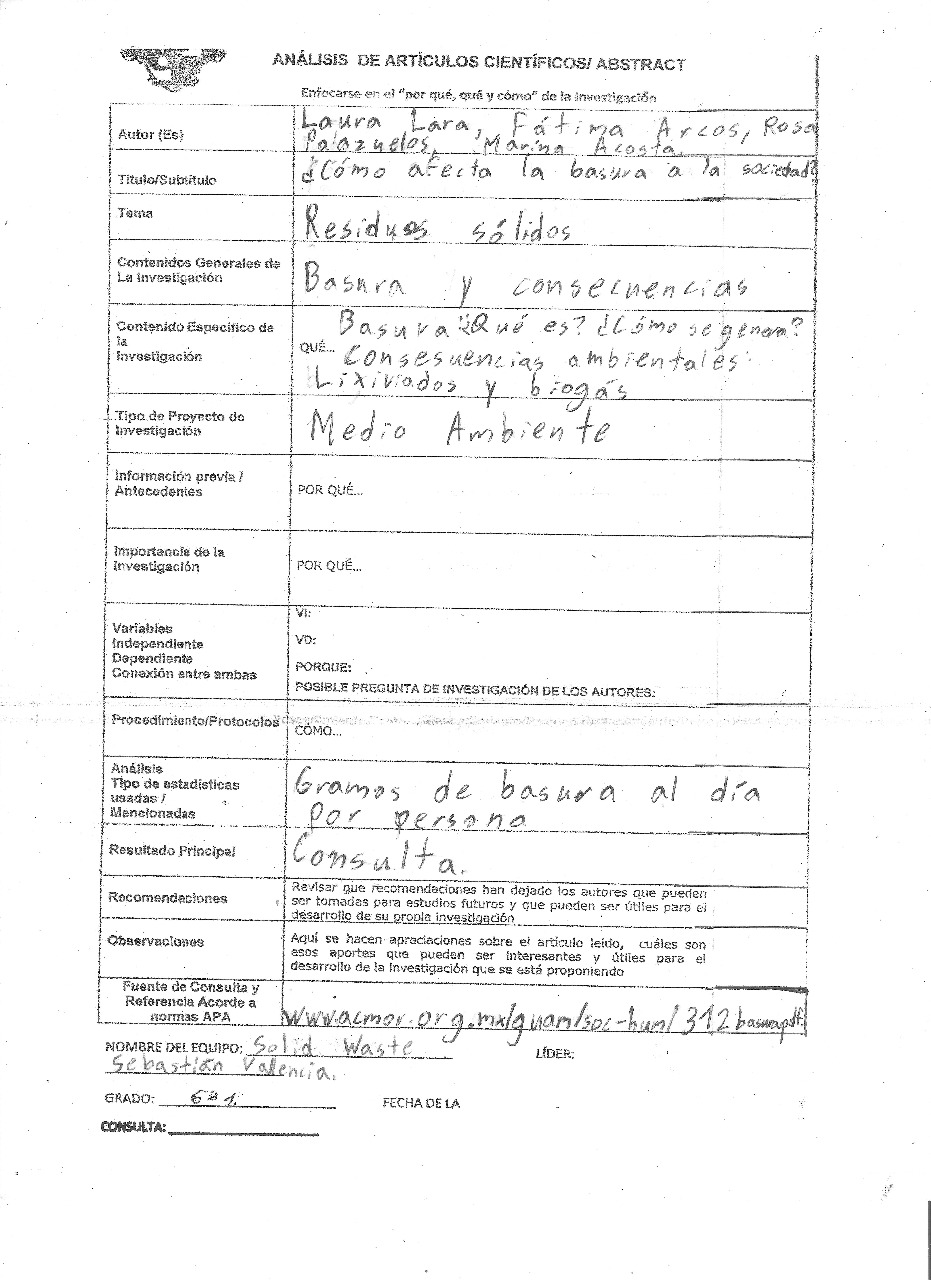 ANÁLISIS DE ARTÍCULOS CIENTÍFICOS/ ABSTRACT
Enfocarse en el "por qué, qué y cómo" de la investigación
Autor (Es)
Laura Lara, Fátima Arcos, Rosa
Palazuelos, Marina Acosta.
Título/Subtítulo
¿Cómo afecta la basura a la sociedad?
Tema
Residuos sólidos
Contenidos Generales de
La Investigación
Basura y consecuencias
Contenido Específico de
la
Investigación
QUÉ...
Basura ¿Qué es? ¿Cómo se genera?
Consesuencias ambientales:
Lixiviados y biogás
Tipo de Proyecto de
Investigación
Medio Ambiente
Información previa /
Antecedentes
POR QUÉ...
Importancia de la
Investigación
POR QUÉ...
Variables
Independiente
Dependiente
Conexión entre ambas
VI:
VD:
PORQUE:
POSIBLE PREGUNTA DE INVESTIGACIÓN DE LOS AUTORES:
Procedimiento/Protocolos
CÓMO...
Análisis
Tipo de estadísticas
usadas /
Mencionadas
Gramos de basura al día
por persona
Resultado Principal
Consulta.
Recomendaciones
Revisar que recomendaciones han dejado los autores que pueden
ser tomadas para estudios futuros y que pueden ser útiles para el
desarrollo de su propia investigación
Observaciones
Aquí se hacen apreciaciones sobre el artículo leído, cuáles son
esos aportes que pueden ser interesantes y útiles para el
desarrollo de la investigación que se está proponiendo
Fuente de Consulta y
Referencia Acorde a
normas APA
www.acmor.org.mx/guam/soc-hum/312basura.pdf.
NOMBRE DEL EQUIPO: Solid Waste
LÍDER:
Sebastián Valencia.
GRADO:
FECHA DE LA
CONSULTA: